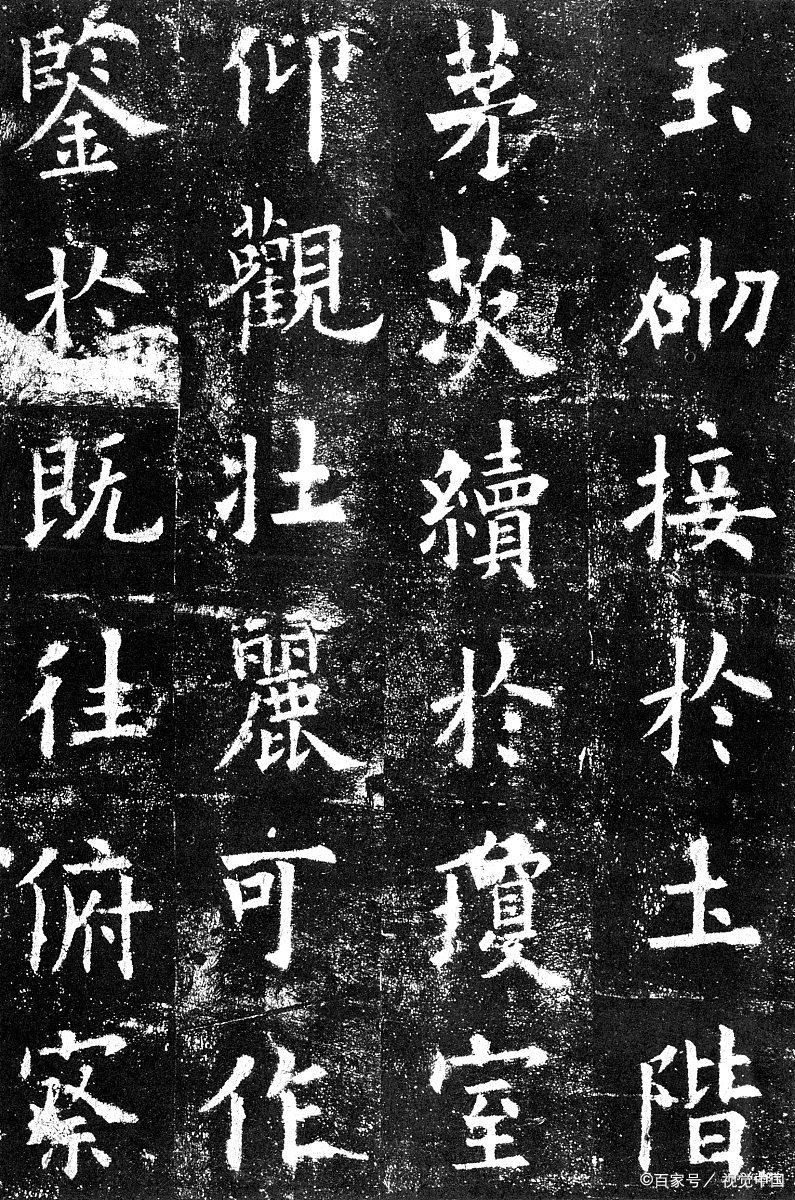 玉砌接於土階
茅茨續於瓊室
仰觀壯麗可作
鑒於既往俯察
©百家号／视觉中国